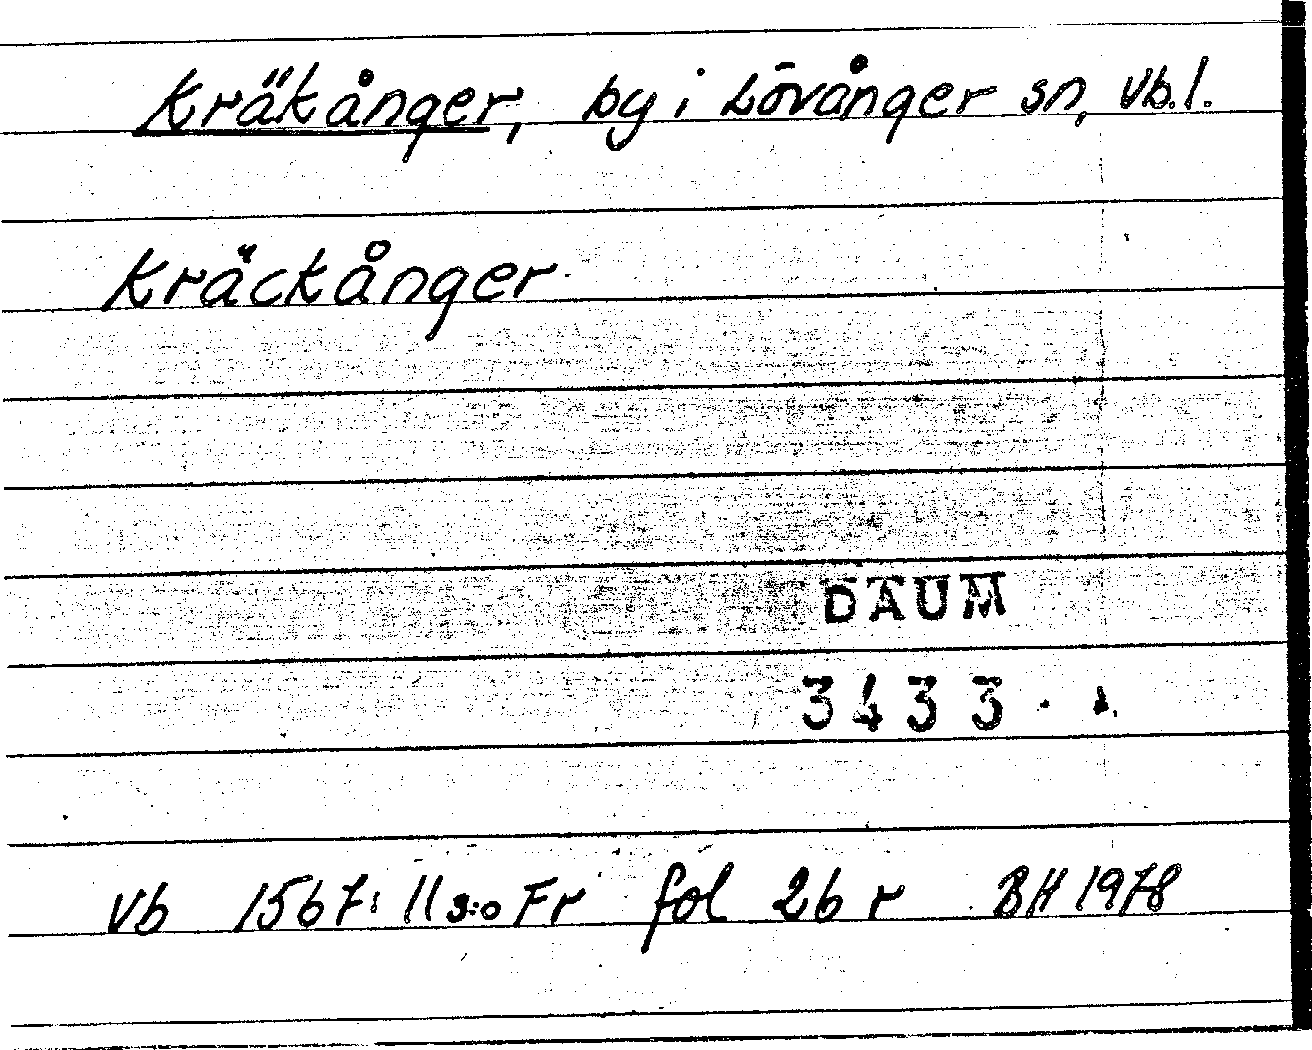 Kräkånger, by i Lövånger sn, Vb.l.
Kräckånger
DAUM
3433
Vb 1567:11 s:o Fr fol 26 r BH 1978